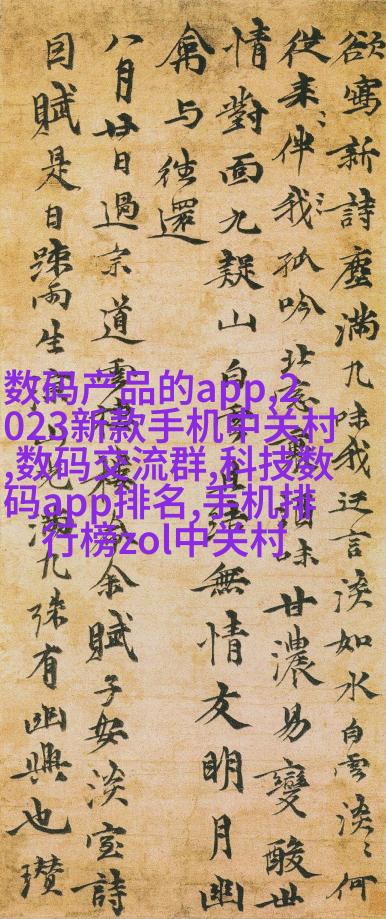 欲寫新詩塵滿几味我迂言淡如水白雲淡〻何
従来〻伴我〻孤吟北味甘濃易變酸世
情對面九疑山白無情友明月幽
禽与往還
八月廿日過宗道雲余賦子安淡室詩
目賦是日踈雨生有幽興也瓚
数码产品的app,2
023新款手机中关村
,数码交流群,科技数
码app排名,手机排
行榜zol中关村